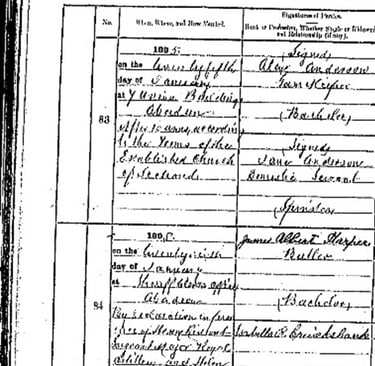 No.
When, Where, and How Married.
Signatures of Parties.
Rank or Profession, Whether Single or Widowed,
and Relationship (if any).
83
1895.
on the twenty fifth
day of January
at 7 Union Buildings
Aberdeen
After Banns, according
to the Forms of the
Established Church
of Scotland
Signed
Alex Anderson
(Bachelor)
Signed
Jane Anderson
Domestic Servant
Spinster
84
1895.
on the twenty sixth
day of January
at Sheriff Clerk's office
Aberdeen
By declaration in pres
ence of Henry
Sergeant Major Royal
Artillery and Helen
James Albert Harper
Butler
(Bachelor)
Isabella R. Cruickshank